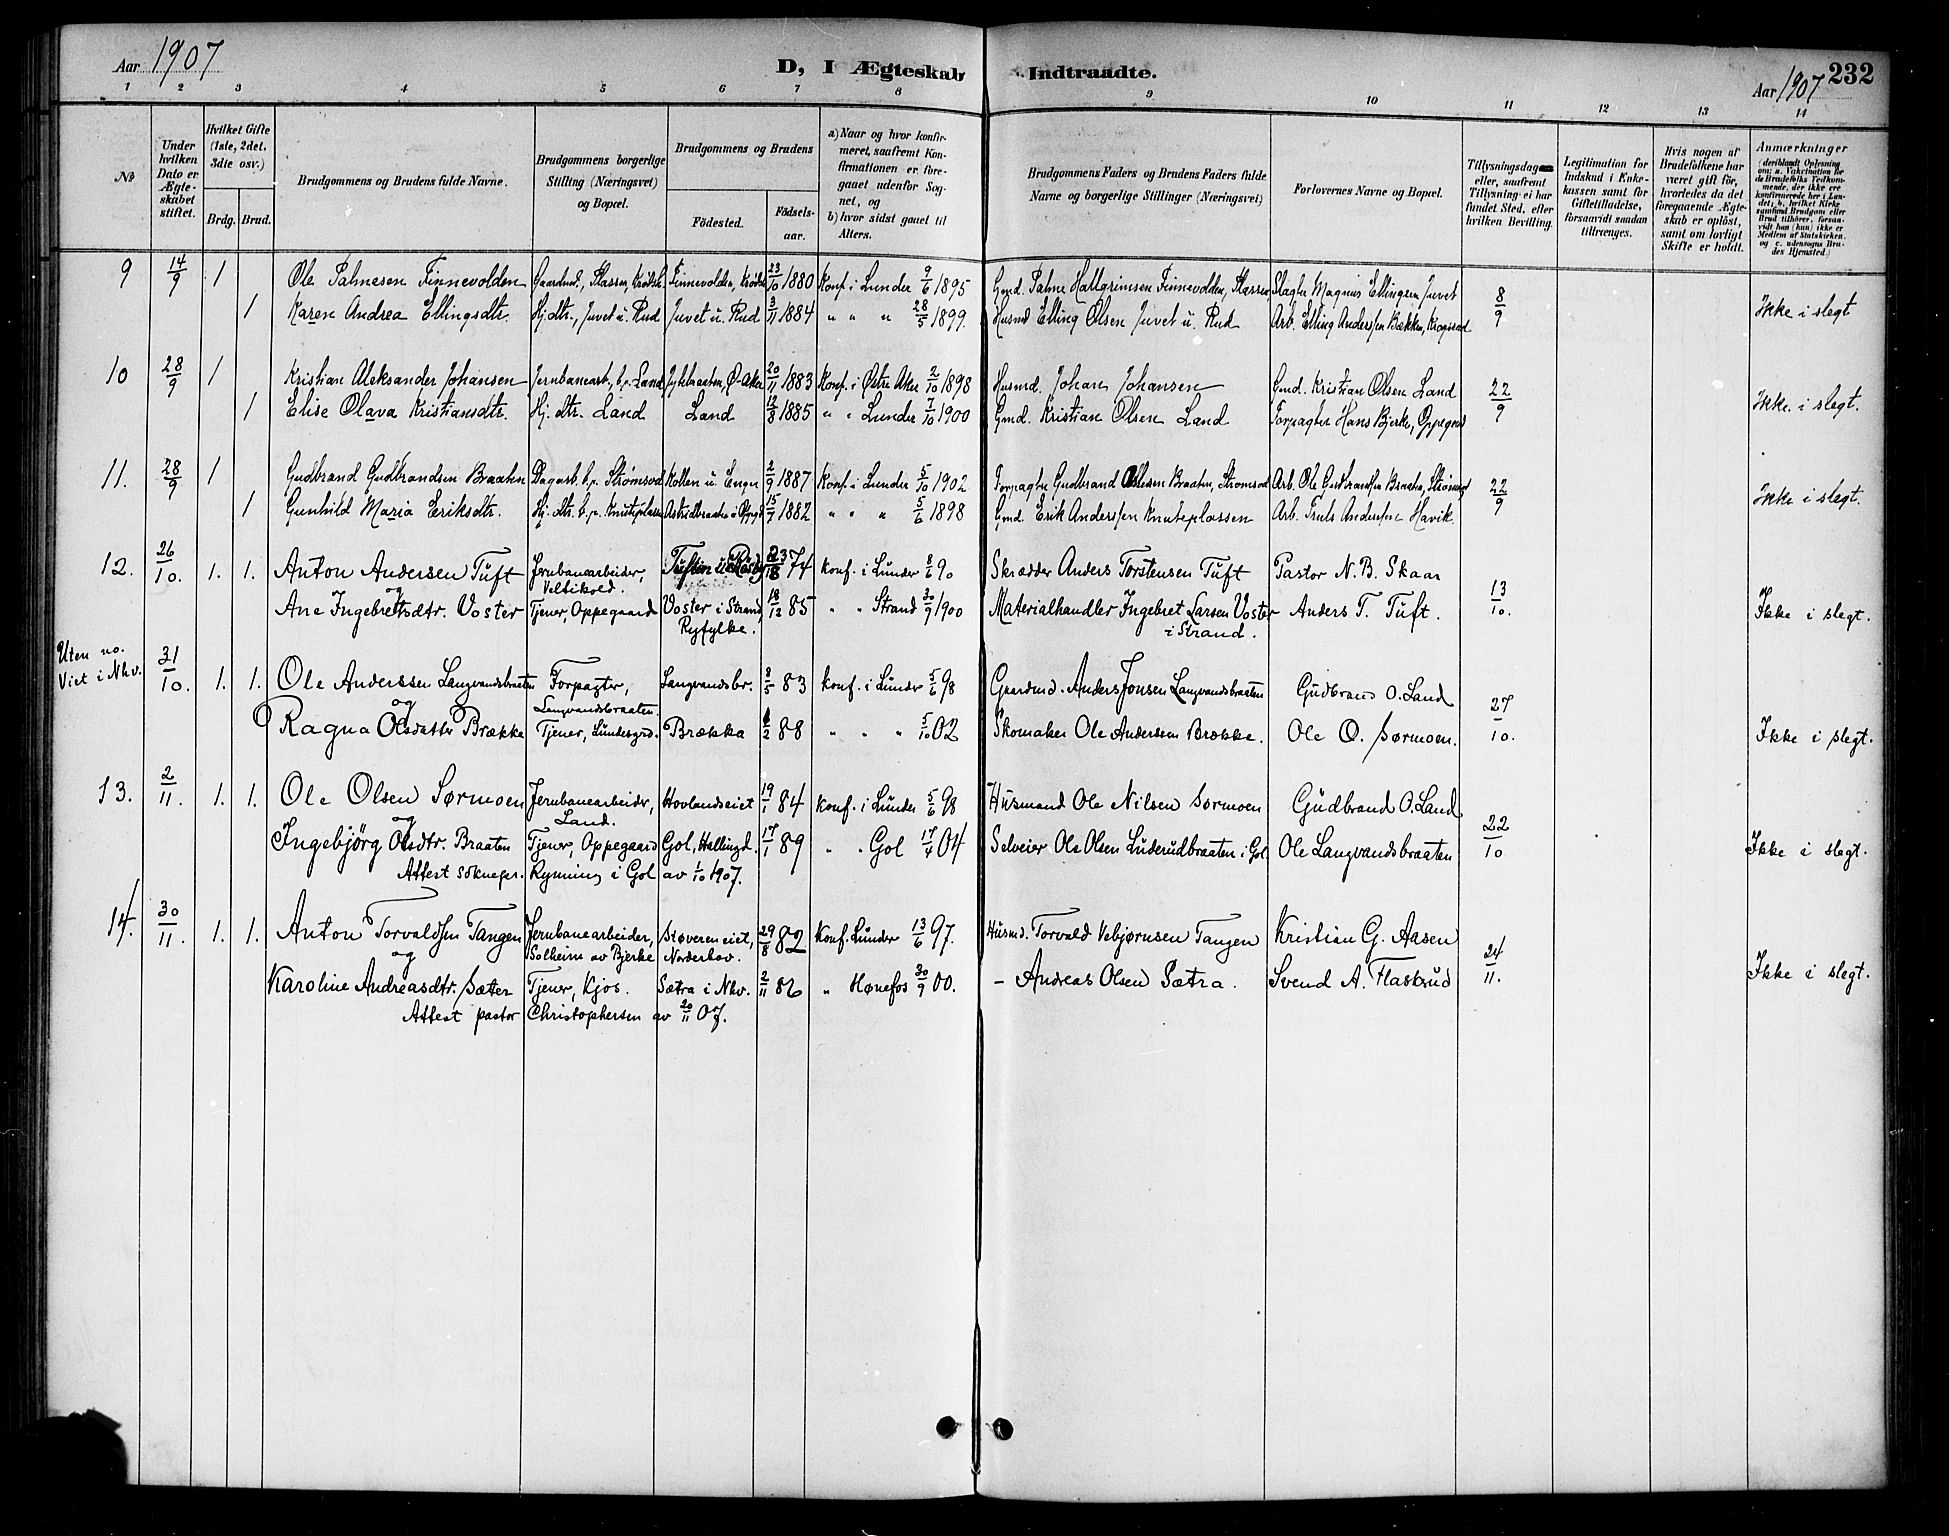 Aar 1907
D, I Ægteskab Indtraadte.
Aar 1907 232
1 2 3 4 5 6 7 8 9 10 11 12 13 14
No
Under hvilken Dato er Ægteskabet stiftet.
Hvilket Gifte (1ste, 2det, 3die osv.)
Brdg. Brud.
Brudgommens og Brudens fulde Navne.
Brudgommens borgerlige Stilling (Næringsvei) og Bopæl.
Brudgommens og Brudens
Födested. Födselsaar.
a) Naar og hvor konfirmeret, saafremt Konfirmationen er foregaaet udenfor Sognet, og
b) hvor sidst gaaet til Alters.
Brudgommens Faders og Brudens Faders fulde Navne og borgerlige Stillinger (Næringsvei)
Forlovernes Navne og Bopæl.
Tillysningsdage eller, saafremt Tillysning ei har fundet Sted, efter hvilken Bevilling.
Legitimation for Indskud i Enkekassen samt for Giftetilladelse, forsaavidt saadan tiltrænges.
Hvis nogen af Brudefolkene har været gift för, hvorledes da det foregaaende Ægteskab er oplöst, samt om lovligt Skifte er holdt.
Anmærkninger
(deriblandt Oplysning om: a. Vakcination for de Brudefolks Vedkommende, der ikke ere konfirmerede her i Landet; b. hvilket Kirkesamfund Brudgom eller Brud tilhörer, forsaavidt han (hun) ikke er Medlem af Statskirken, og c. udensogns Brudes Hjemsted.)
9 14/9 1 Ole Palmesen Finnevolden Gaardmd., Plassen, Krødsh. Finnevolden, Krødsh. 23/10 1880 Konf. i Lunder 9/6 1895 Gmd. Palme Hallgrimsen Finnevolden, Plassen Slagter Magnus Ellingsen Juvet 8/9
1 Karen Andrea Ellingsdtr. Hj.dtr., Juvet u. Rud Juvet u. Rud 3/11 1884 " " " 28/5 1899. Husmd Elling Olsen Juvet u. Rud Arb. Elling Anderssen Bækken, Ikke i slegt
10 28/9 1 Kristian Aleksander Johansen Jernbanearb., b.p. Land Ø-Aker 20/11 1883 Konf. i Østre Aker 2/10 1898 Husmd. Johan Johansen Gmd. Kristian Olsen Land 22/9
1 Elise Olava Kristiansdtr. Hj. dtr. Land Land 12/8 1885 " " Lunder 7/10 1900 Gmd. Kristian Olsen Land Forpagter Hans Bjerke, Oppegrd Ikke i slegt.
11. 28/9 1 Gudbrand Gudbrandsen Braaten Dagarb. b.p. Strømsod Kolten u. Enger 2/9 1887 Konf. i Lunder 5/10 1902 Forpagter Gudbrand Olsen Braaten, Strømsod Arb. Ole Gudbrandsen Braaten, Strømsod 22/9
1 Gunhild Maria Eriksdtr. Hj. dtr. b.p. Knuteplassen Astridbraaten 15/7 1882 " " " 5/6 1898 Gmd. Erik Anderssen Knuteplassen Arb. Truls Anderssen Havik. Ikke i slegt.
12. 26/10. 1. 1. Anton Andersen Tuft Jernbanearbeider, Velsikold. 74 konf. i Lunder 8/6 90 Skrædder Anders Torstensen Tuft Pastor N. B. Skaar 13/10.
og
Ane Ingebretsdtr. Voster Tjener, Oppegaard Voster i Strand, Ryfylke. 18/12 85 " " Strand 30/9 1900 Materialhandler Ingebret Larsen Voster i Strand. Anders T. Tuft. Ikke i slegt.
Uten no. Viet i Nhv. 31/10. 1. 1. Ole Anderssen Langvandsbraaten Forpagter, Langvandsbraaten. Langvandsbr. 8/5 83 konf. i Lunder 5/6 98 Gaardmd. Anders Jonsen Langvandsbraaten Gudbrand O. Land 27/10.
og
Ragna Olsdatter Brække Tjener, Lundesgrd. Brækka 88 " " " 5/10 02 Skomaker Ole Anderssen Brække. Ole O. Sørmoen. Ikke i slegt.
13. 2/11. 1. 1. Ole Olsen Sørmoen Jernbanearbeider, Land. Hovlandseiet 19/1 84 konf. i Lunder 5/6 98 Husmand Ole Nilsen Sørmoen Gudbrand O. Land 22/10
og
Ingebjörg Olsdtr. Braaten Tjener, Oppegaard Gol, Hallingd. 17/1 89 " " Gol 17/4 04 Selveier Ole Olsen Luderudbraaten i Gol Ole Langvandsbraaten Ikke i slegt.
Attest sokneper. Rynning i Gol av 1/10 1907.
14. 30/11. 1. 1. Anton Torvaldsen Tangen Jernbanearbeider, Solheim av Bjerke Støvereneiet, Norderhov. 29/8 82 Konf. Lunder 13/6 97. Husmd. Torvald Vebjørnsen Tangen Kristian G. Aasen 24/11.
og
Karoline Andreasdtr. Sætter Tjener, Kjos. Sætra i Nhv. 2/11 86 " Hønefos 30/9 00. – Andreas Olsen Sætra. Svend A. Flaskrud Ikke i slegt.
Attest pastor Christophersen av 20/11 07.